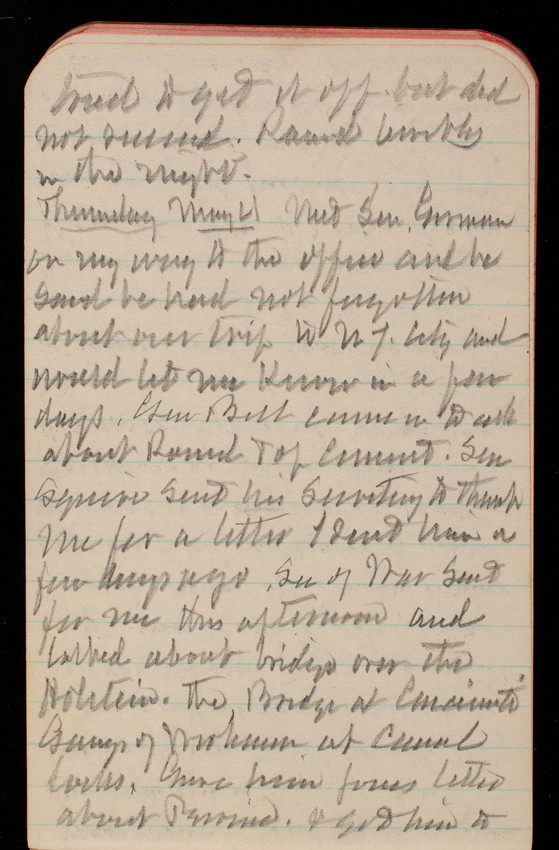 tried to get it off but did
not succeed. Rained terribly
in the night.
Thursday May 21 Met Gen. Gorman
on my way to the office and he
said he had not forgotten
about our trip to N.Y. City and
would let me know in a few
days. Gen Belt came in to ask
about Round Top Commt. Sen
Squire sent his Secretary to thank
me for a letter I sent him a
few days ago. Sec of War sent
for me this afternoon and
talked about bridge over the
Holstein. The Bridge at Cincinnati
Gangs of workmen at Canal
locks. Gave him letter
about. & got him to